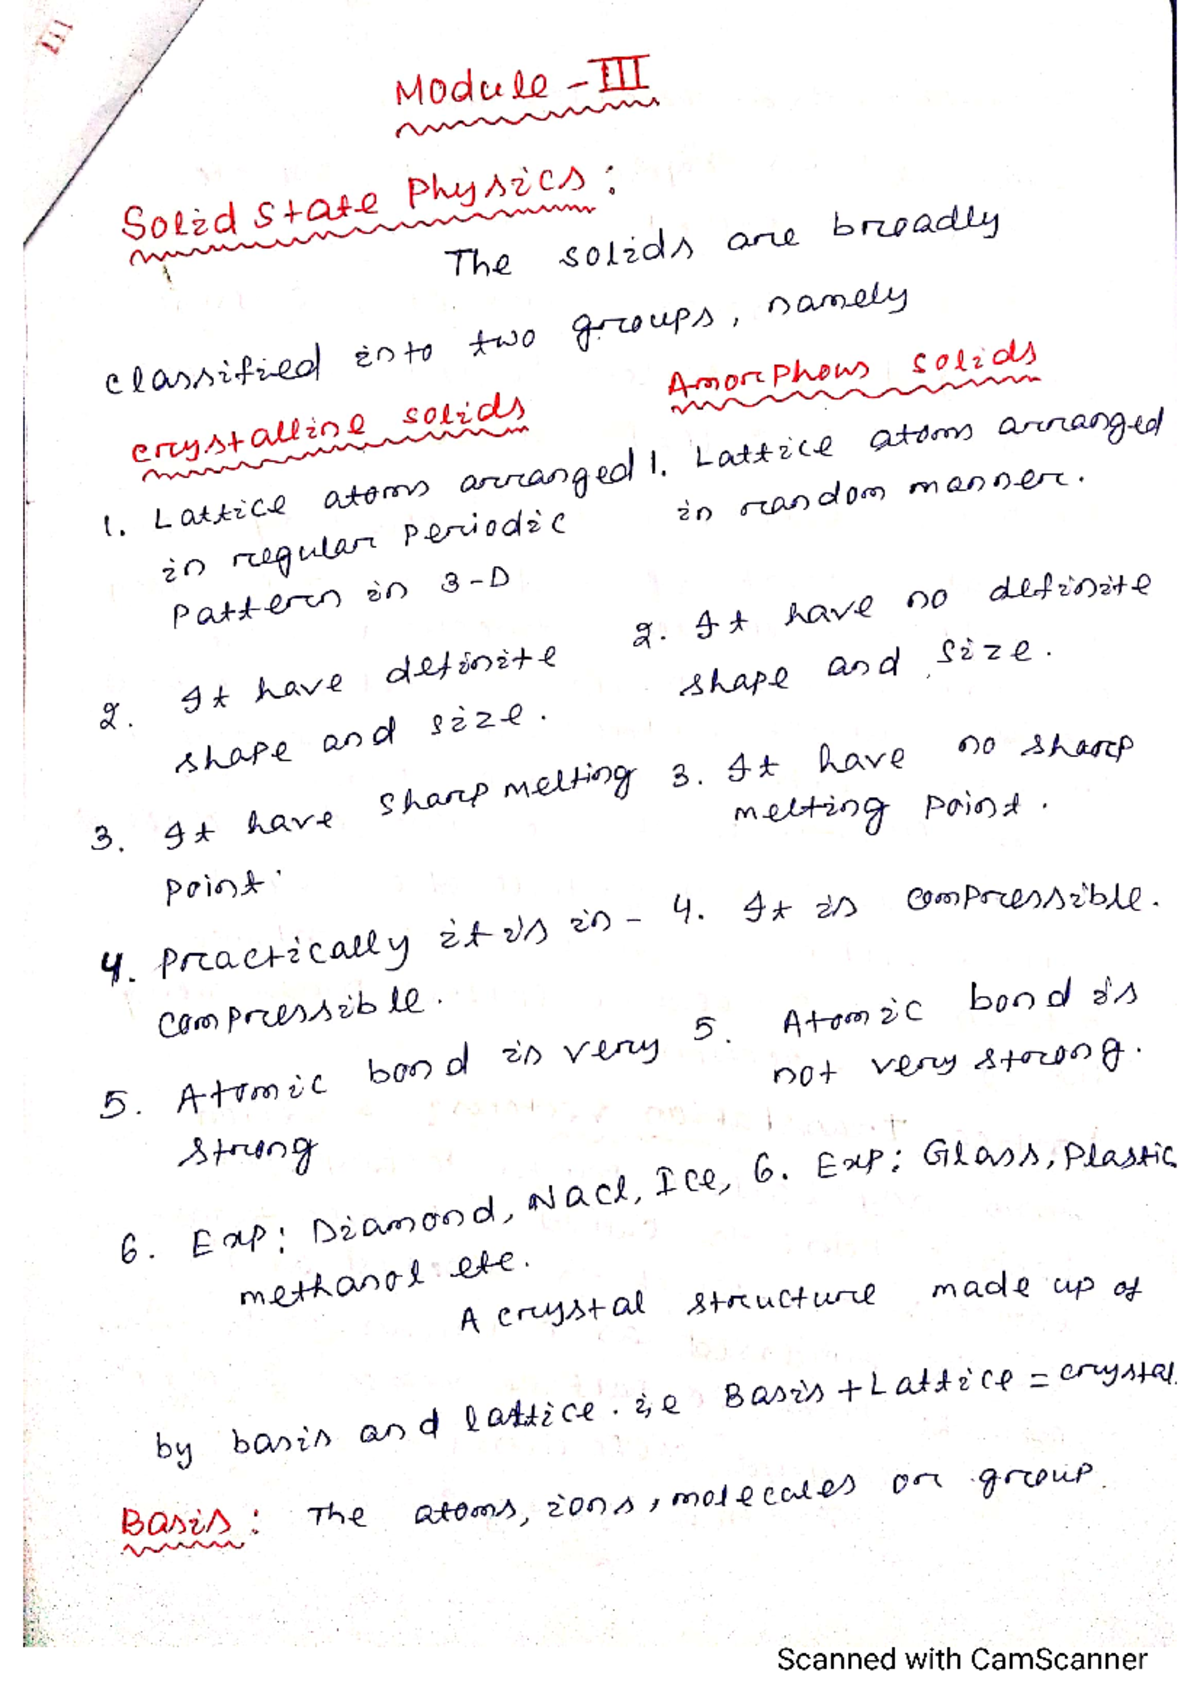 III
Module - III
Solid State Physics :
The solids are broadly
classified into two groups, namely
crystalline solids
1. Lattice atoms arranged
in regular Periodic
Pattern in 3-D
2. It have definite
shape and size.
3. It have sharp melting
point.
4. Practically it is in-
compressible.
5. Atomic bond is very
strong
6. Exp: Diamond, NaCl, Ice,
methanol etc.
Amorphous solids
1. Lattice atoms arranged
in random manner.
2. It have no definite
shape and size.
3. It have no sharp
melting point.
4. It is compressible.
5. Atomic bond is
not very strong.
6. Exp: Glass, Plastic
A crystal structure made up of
by basis and lattice. i,e Basis + Lattice = crystal
Basis : The atoms, ions, molecules or group
Scanned with CamScanner